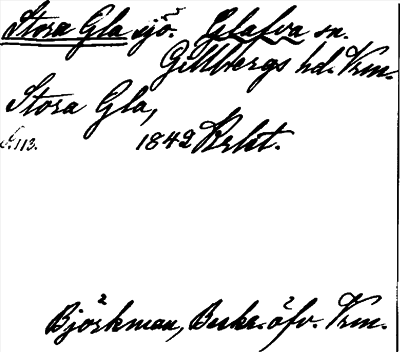 Stora Gla sjö. Glafva sn.
Gillbergs hd. Vrm.
Stora Gla,
S. 113. 1842 Krkt.
Björkman, Beskr. öfv. Vrm.